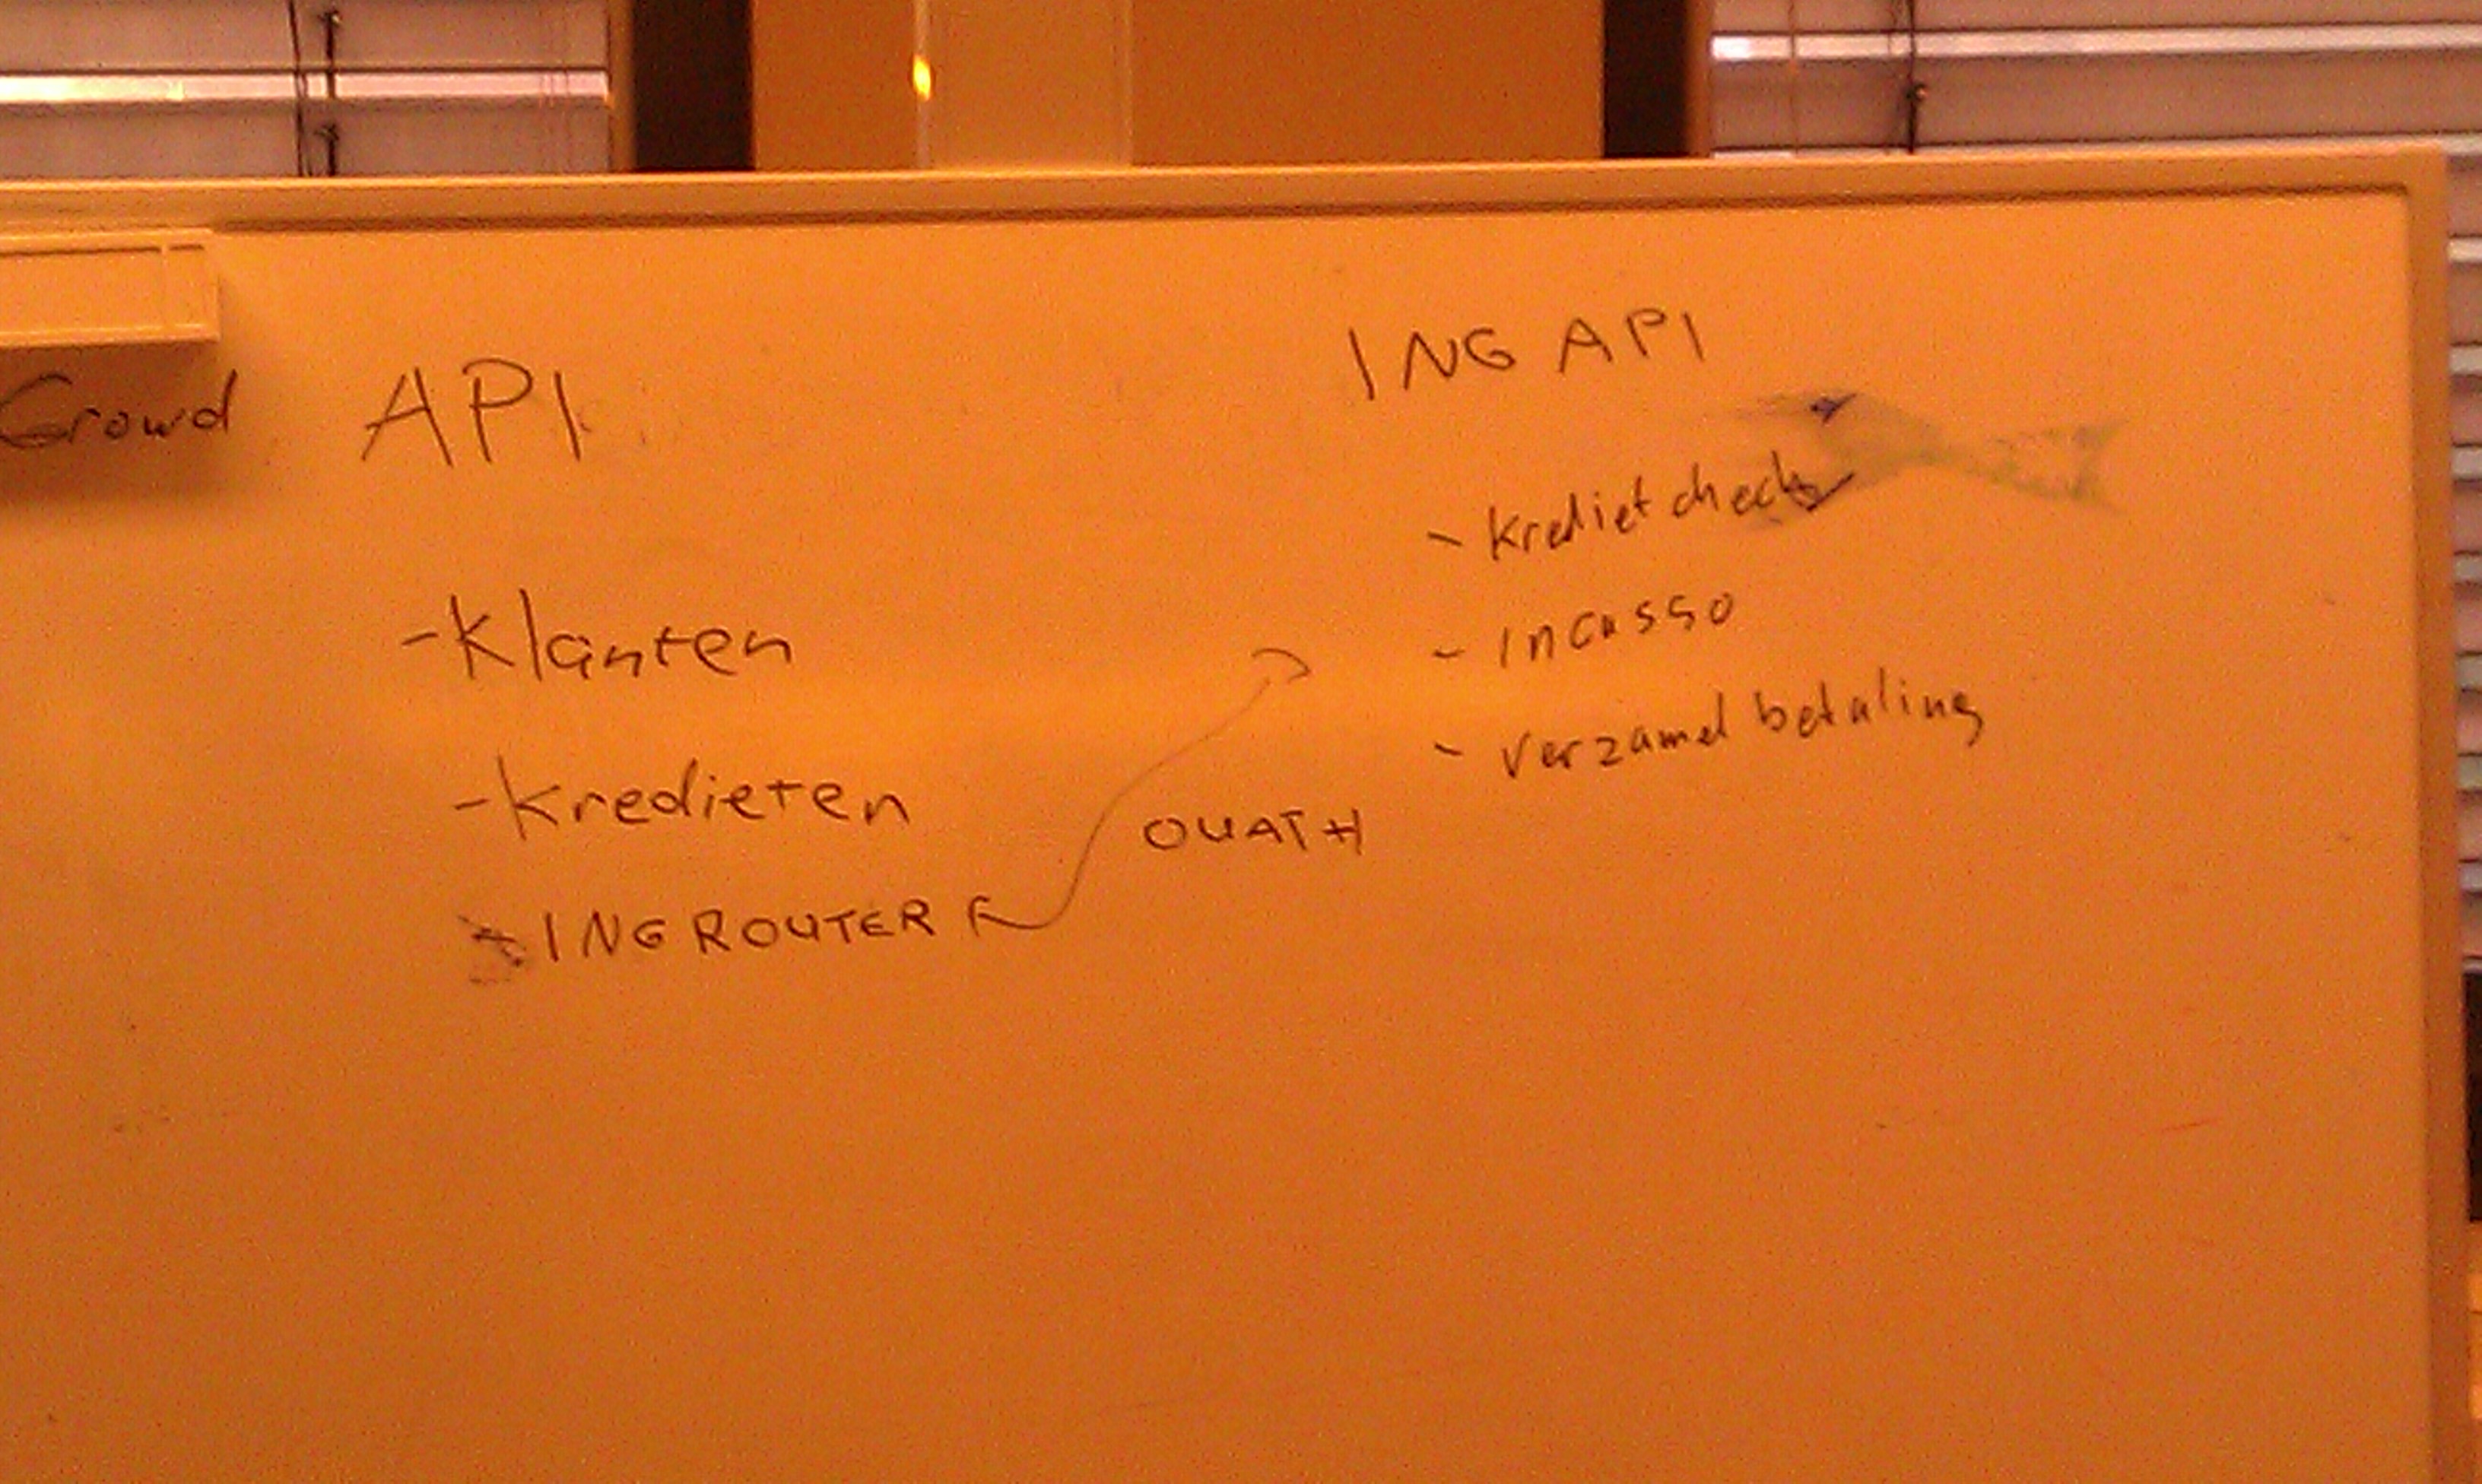 Crowd API
- Klanten
- Kredieten
ING ROUTER
OUATH
ING API
- krediet check
- incasso
- verzamel betaling